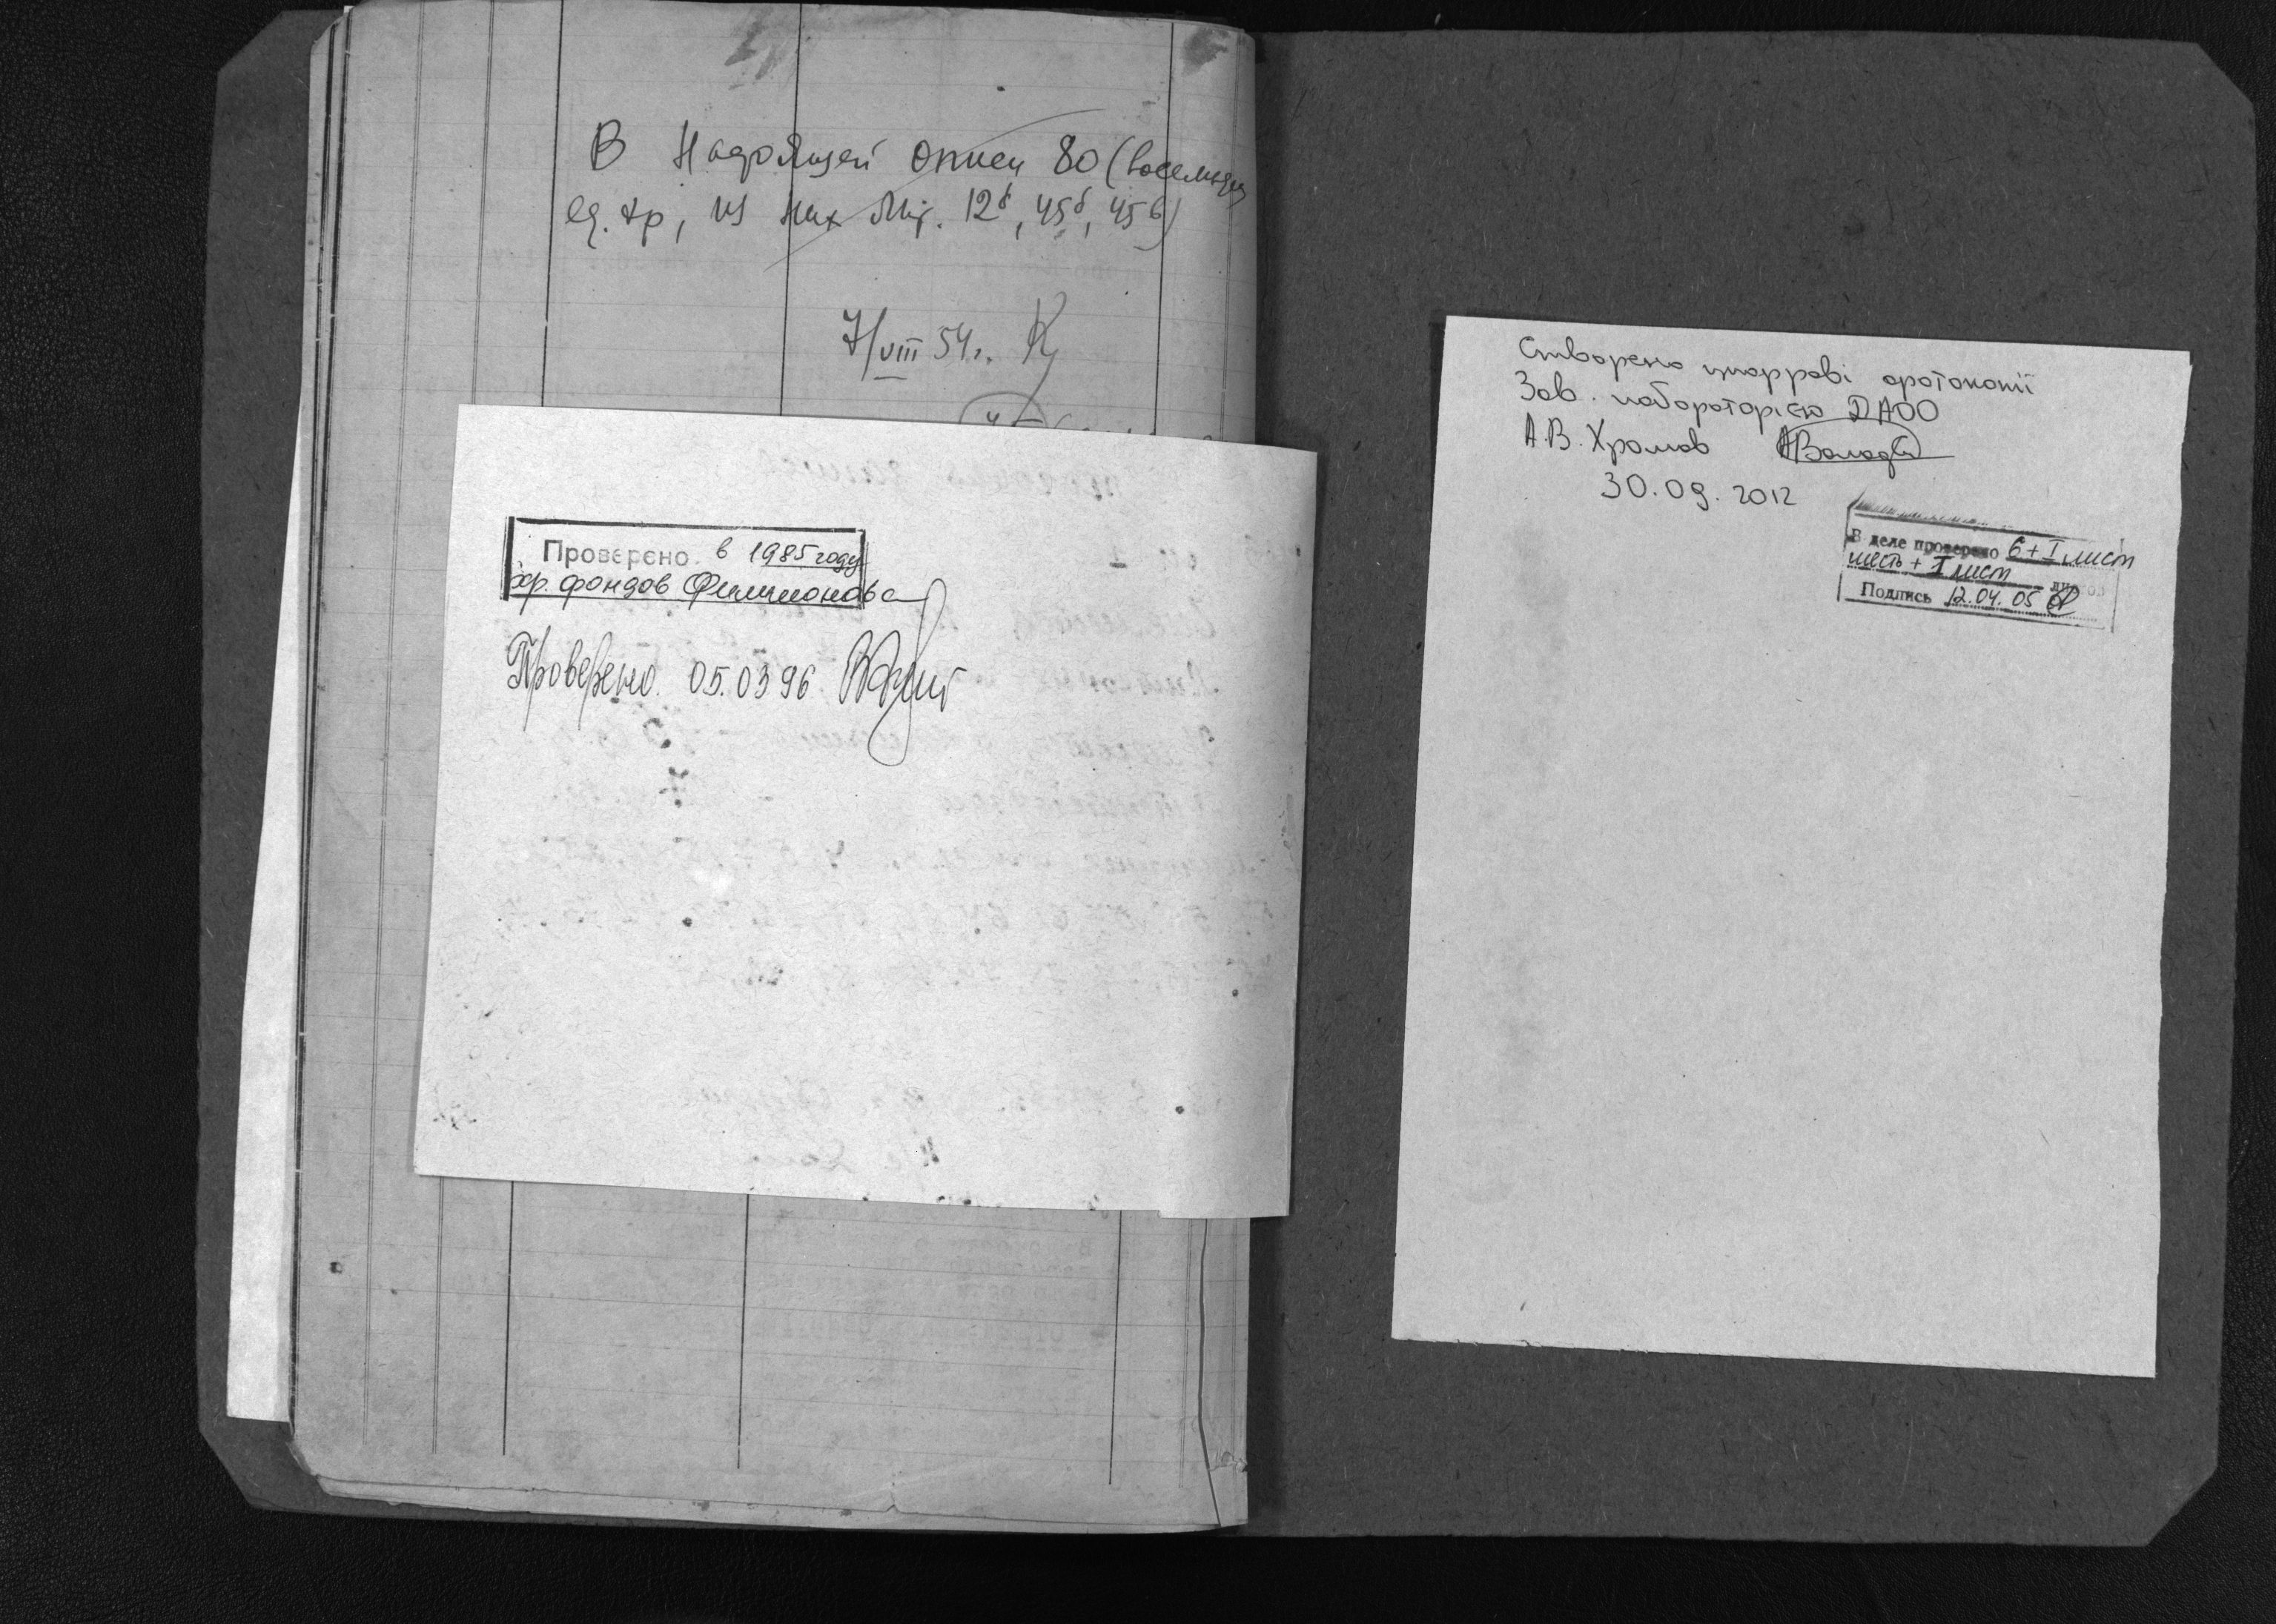 В Настоящей описи 80 (восемьдес
ед. хр, из них Лит. 12б, 45б, 45в)
7/VIII 54г.
Проверено в 1985 году
хр. фондов Филимонова
Проверено. 05.03 96
Створено цифрові фотокопії
Зав. лабораторією ДАОО
А.В. Хромов
30.09.2012
В деле проверено 6 + I лист
шесть + I лист листов
Подпись 12.04.05